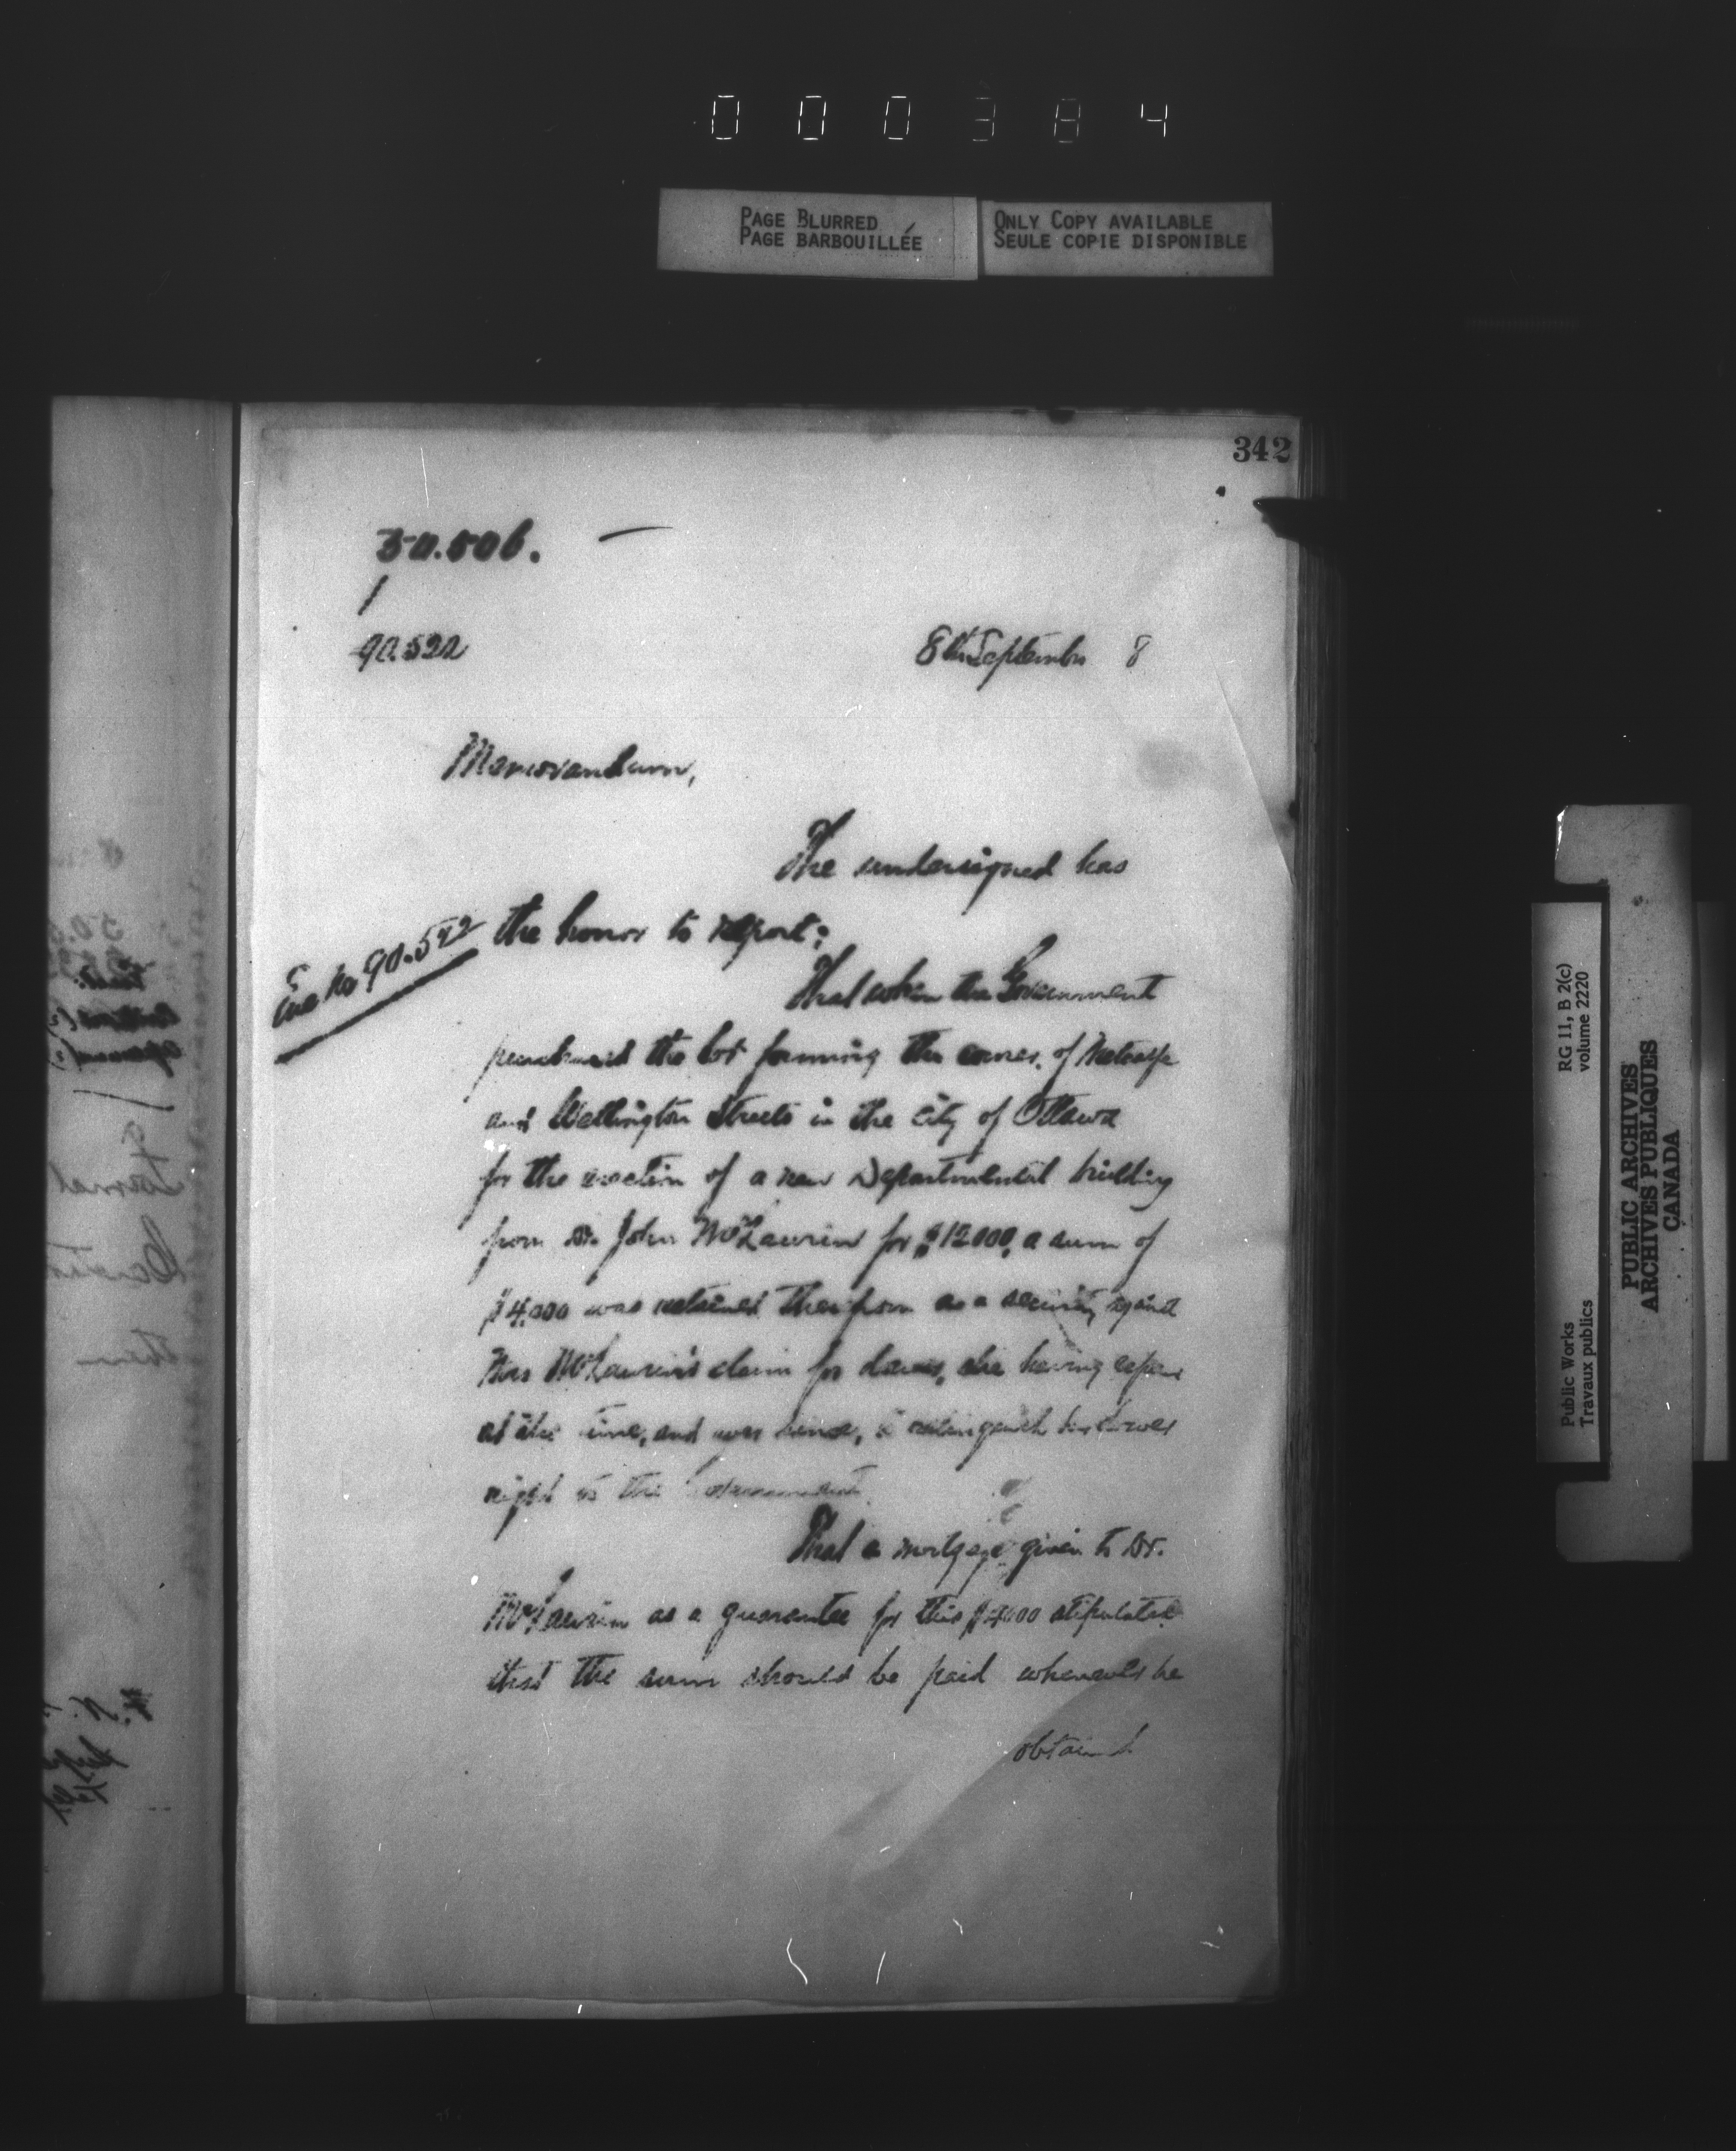 000384
PAGE BLURRED
PAGE BARBOUILLÉE
ONLY COPY AVAILABLE
SEULE COPIE DISPONIBLE
342
50.506.
90.522
8th September 8
Memorandum,
The undersigned has
the honor to report:
90.522
That when the Government
purchased the lot forming the corner of Metcalfe
and Wellington Streets in the City of Ottawa
for the erection of a new Departmental building
from Dr. John McLaurin for $12000, a sum of
$4,000 was retained therefrom as a security against
Mrs McLaurin's claim for dower, she having
at the time, and ever since, relinquish her dower
right to the Government.
That a mortgage given to Dr.
McLaurin as a guarantee for this $4000 stipulated
that the sum should be paid whenever he
obtained
RG 11, B 2(c)
volume 2220
Public Works
Travaux publics
PUBLIC ARCHIVES
ARCHIVES PUBLIQUES
CANADA